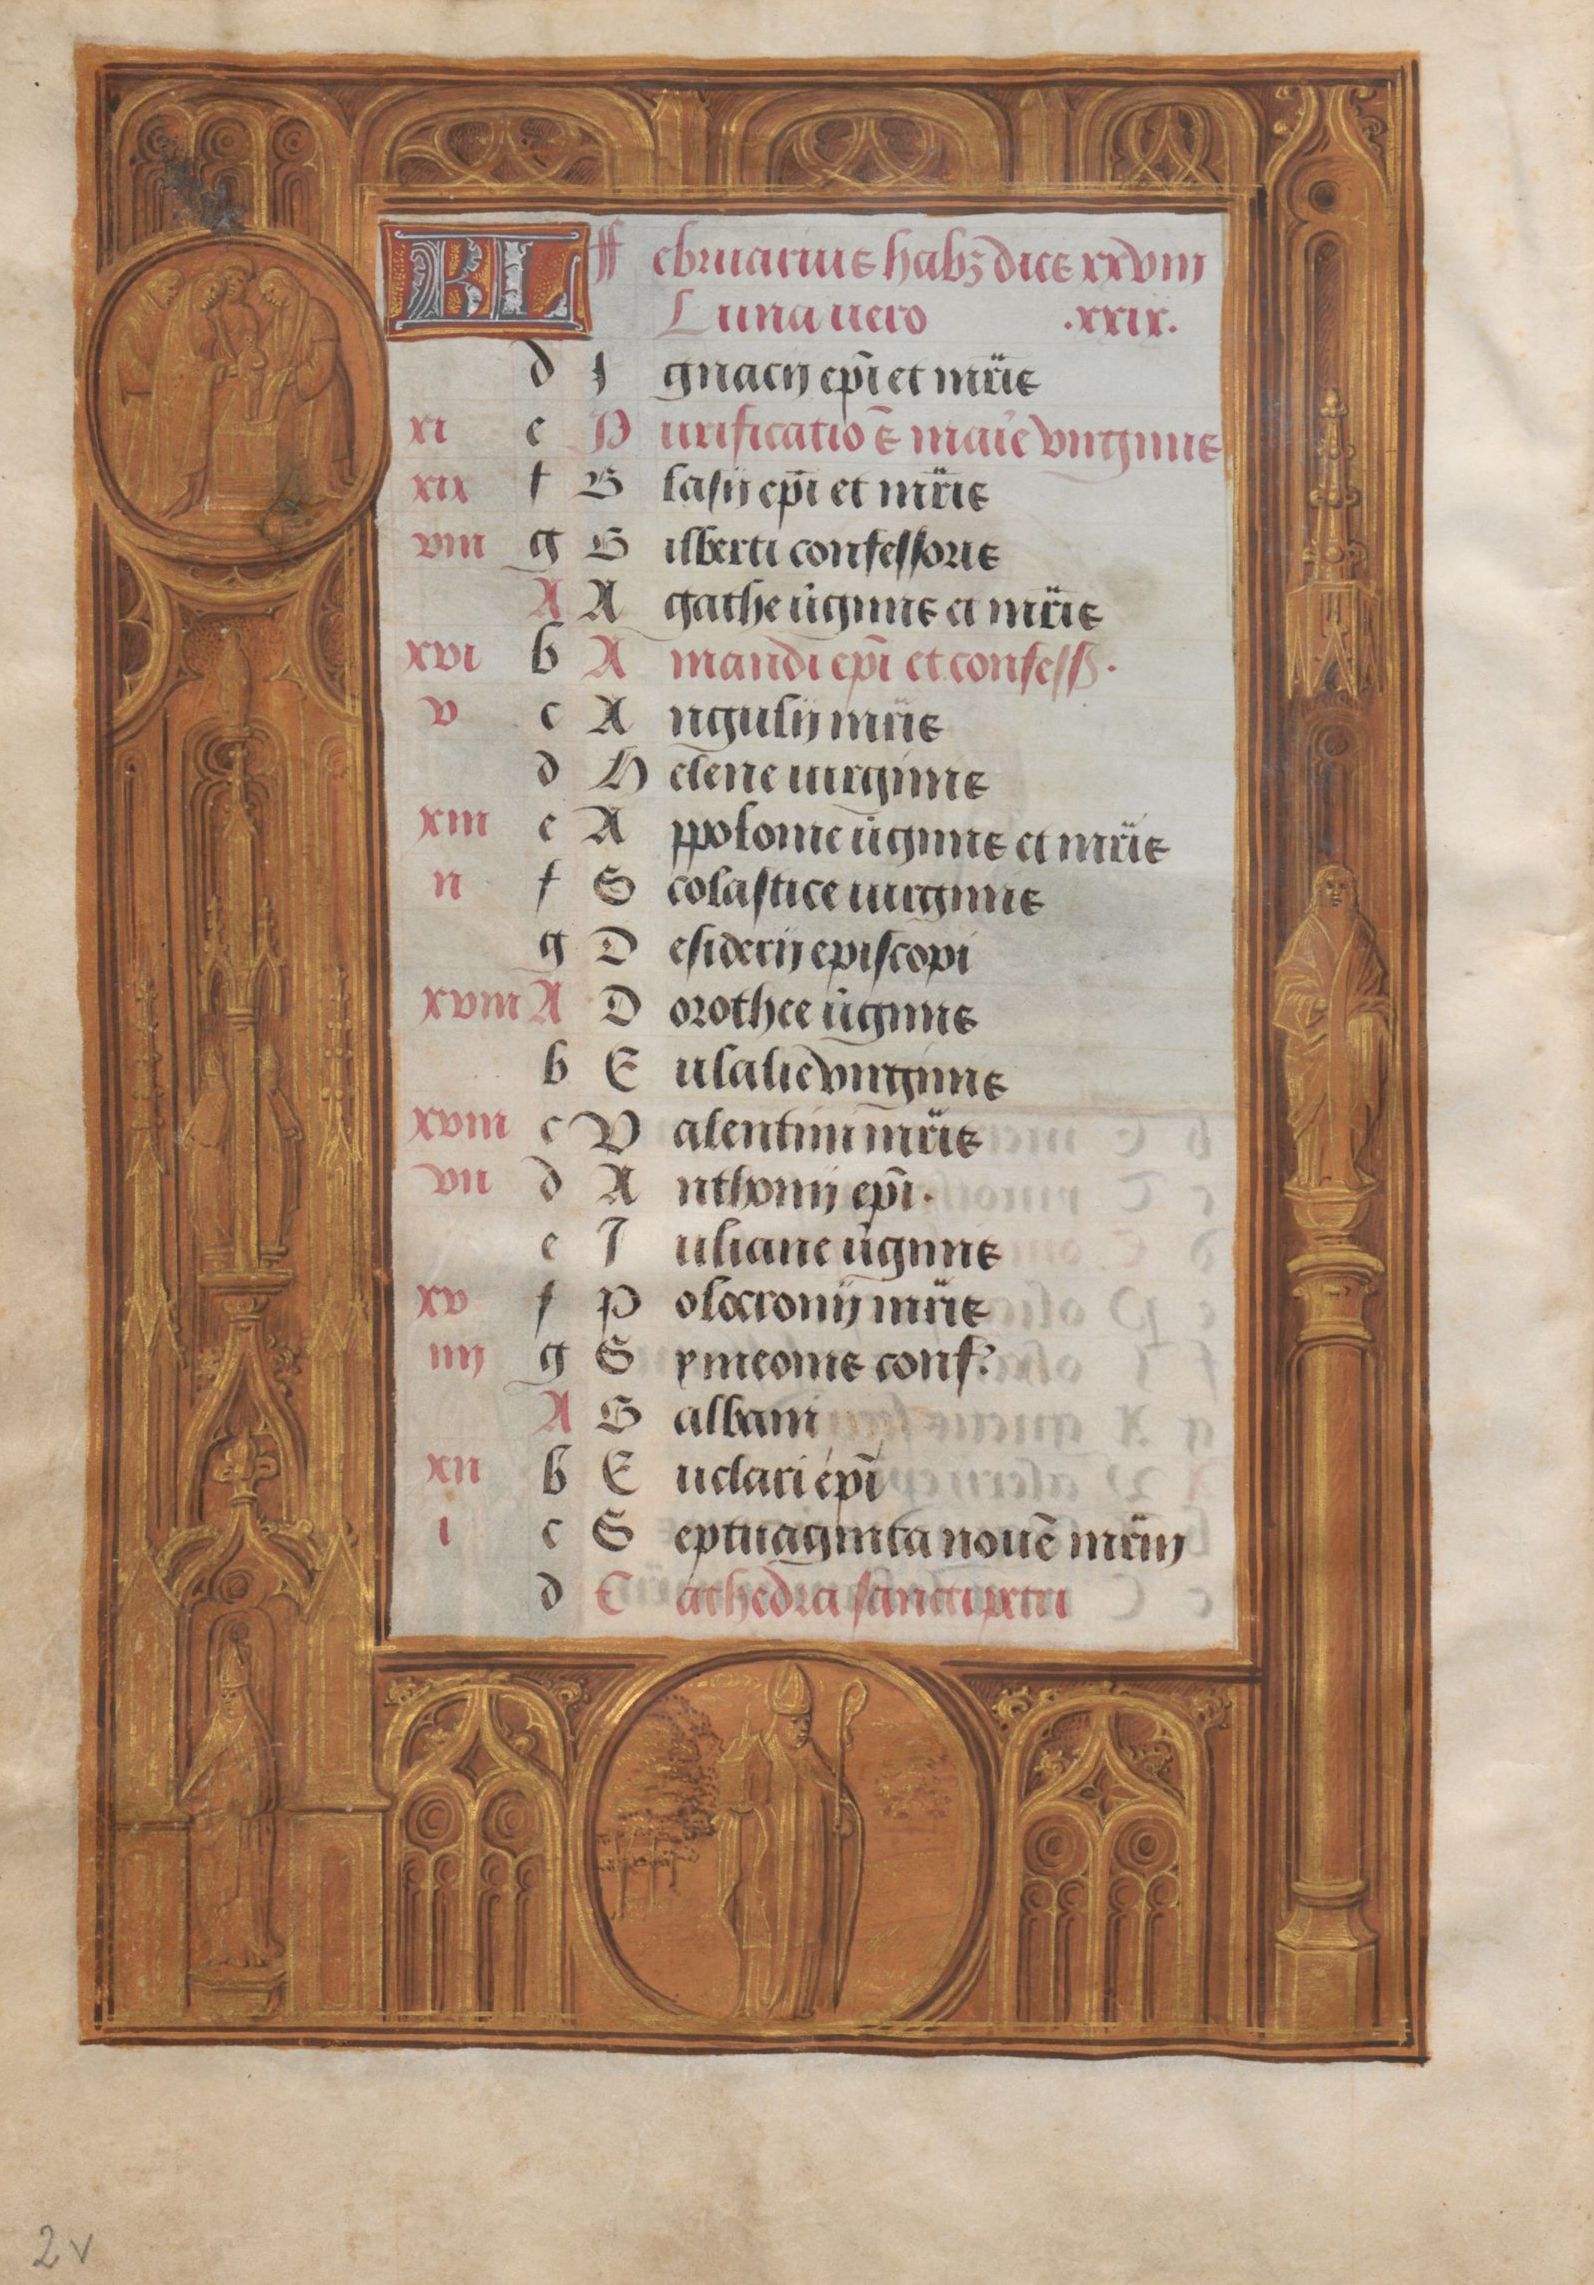 KL Februarius habꝫ dies xxviii
Luna uero .xxix.
d Ignacij ep̄i et mr̄is
xi e Purificatio ē marie virginis
xix f Blasij ep̄i et mr̄is
viii g Gilberti confessoris
A Agathe ūginis et mr̄is
xvi b Amandi ep̄i et confess.
v c Angulij mr̄is
d Helene uirginis
xiii e Appolonie ūginis et mr̄is
ii f Scolastice uirginis
g Desiderij episcopi
xviii A Dorothee ūginis
b Eulalie virginis
xviii c Valentini mr̄is
vii d Anthonij ep̄i.
e Iuliane ūginis
xv f Polocronij mr̄is
iiij g Symeonis conf.
A Galbani
xii b Euclari ep̄i
i c Septuaginta nouē mr̄ij
d Cathedra sancti petri
2v